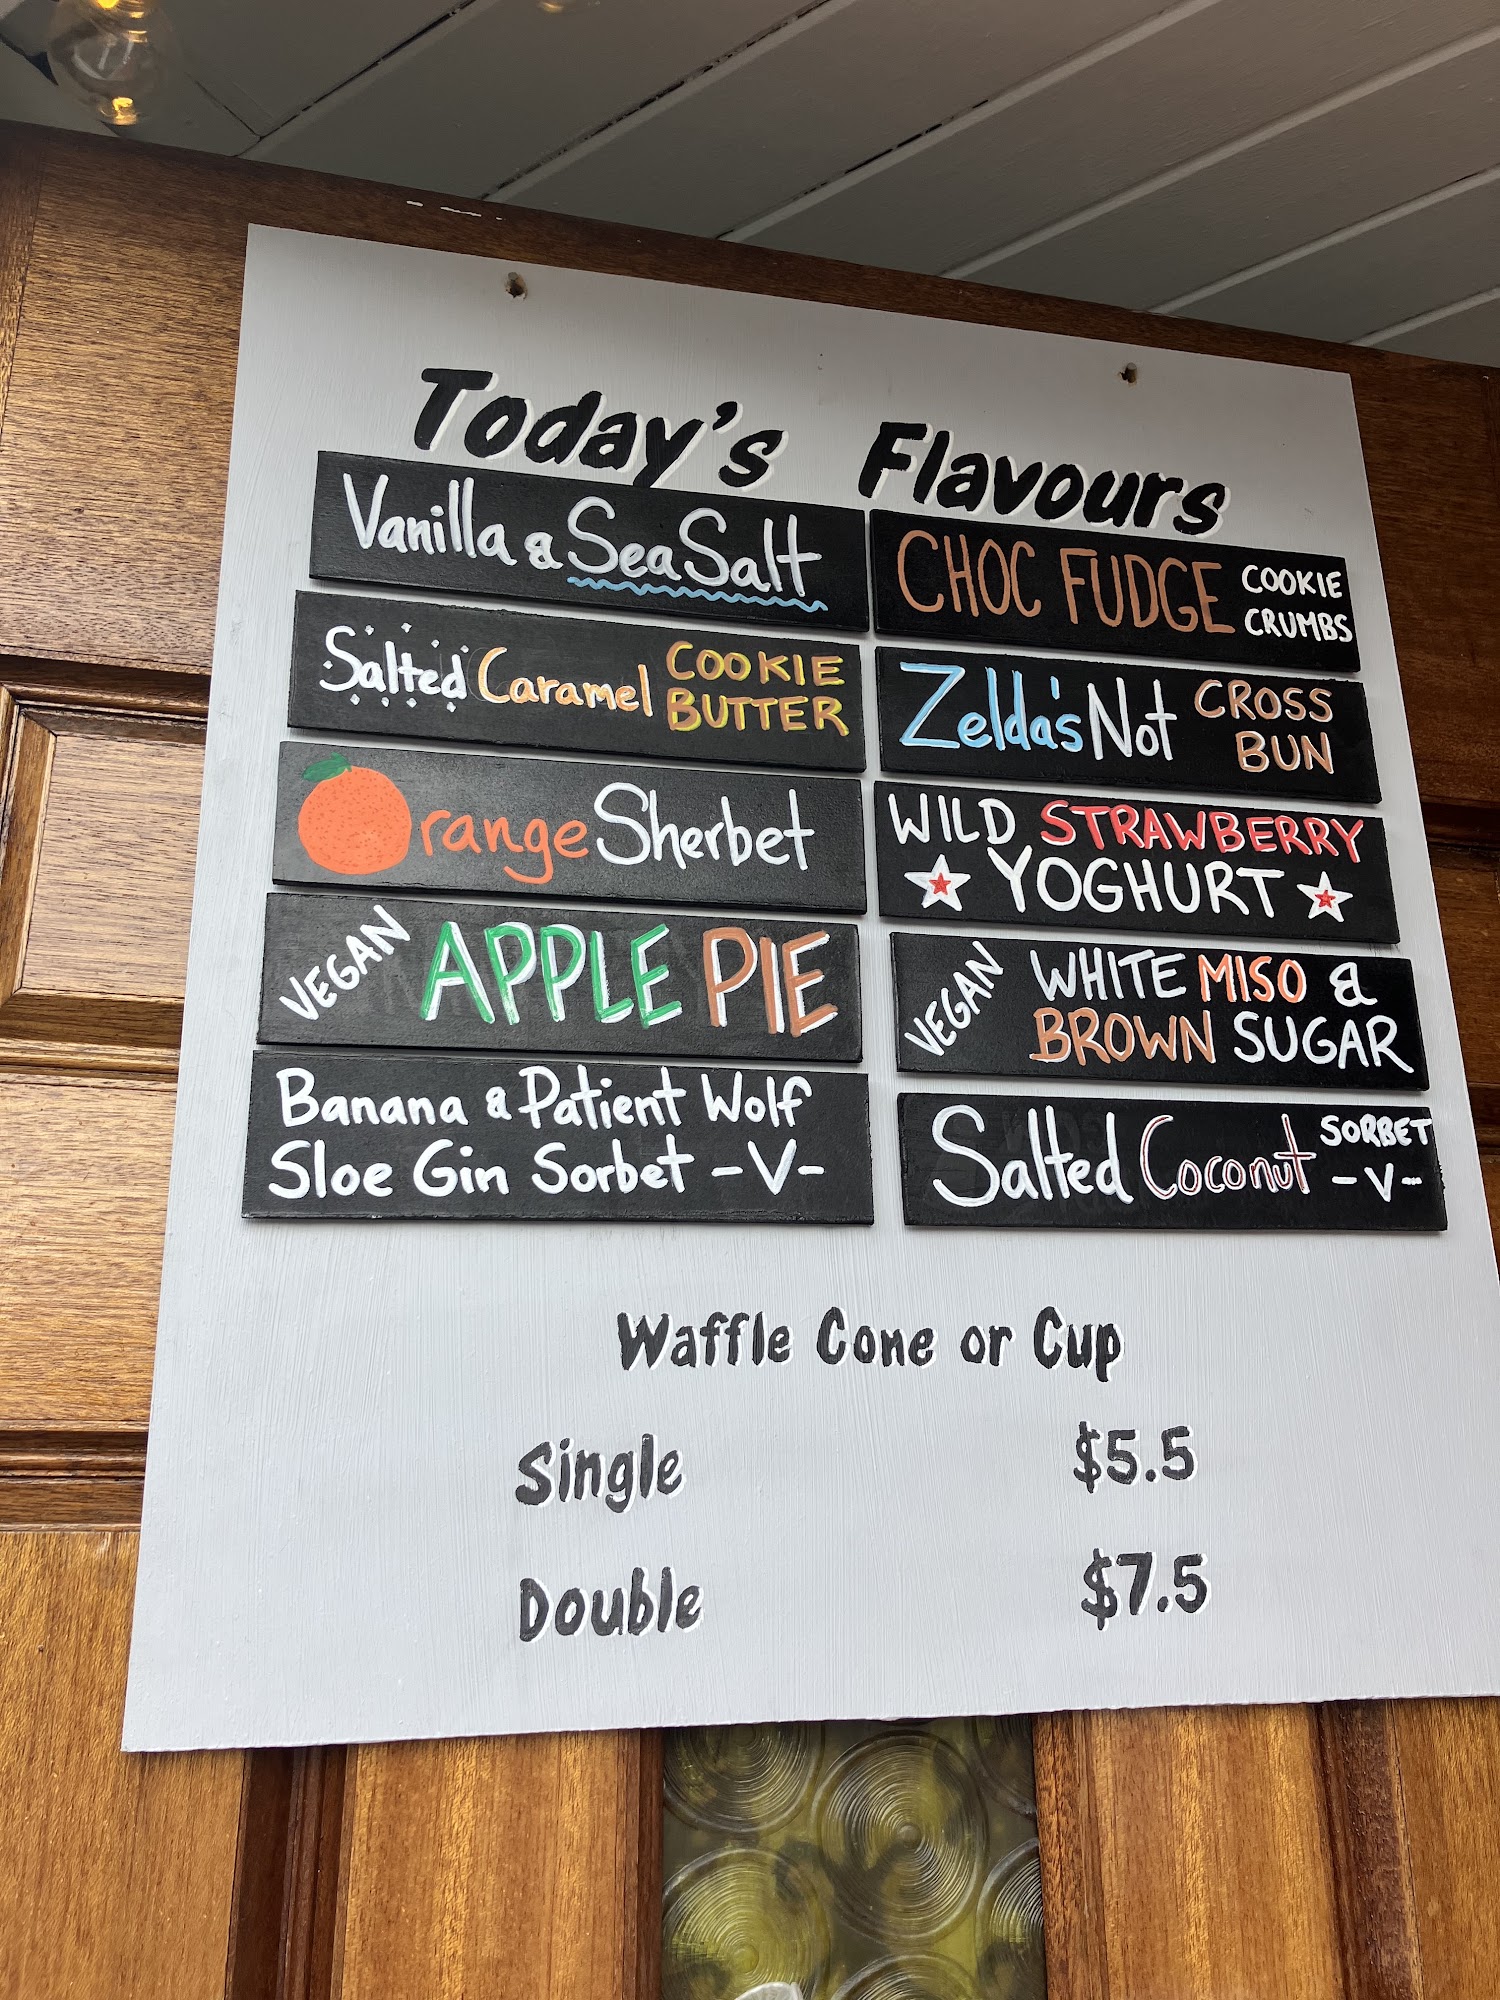 Today's Flavours
Vanilla & Sea Salt
CHOC FUDGE COOKIE
CRUMBS
Salted Caramel COOKIE
BUTTER
Zelda's Not CROSS
BUN
Orange Sherbet
WILD STRAWBERRY
YOGHURT
VEGAN APPLE PIE
VEGAN WHITE MISO &
BROWN SUGAR
Banana & Patient Wolf
Sloe Gin Sorbet -V-
Salted Coconut SORBET
-V-
Waffle Cone or Cup
Single $5.5
Double $7.5